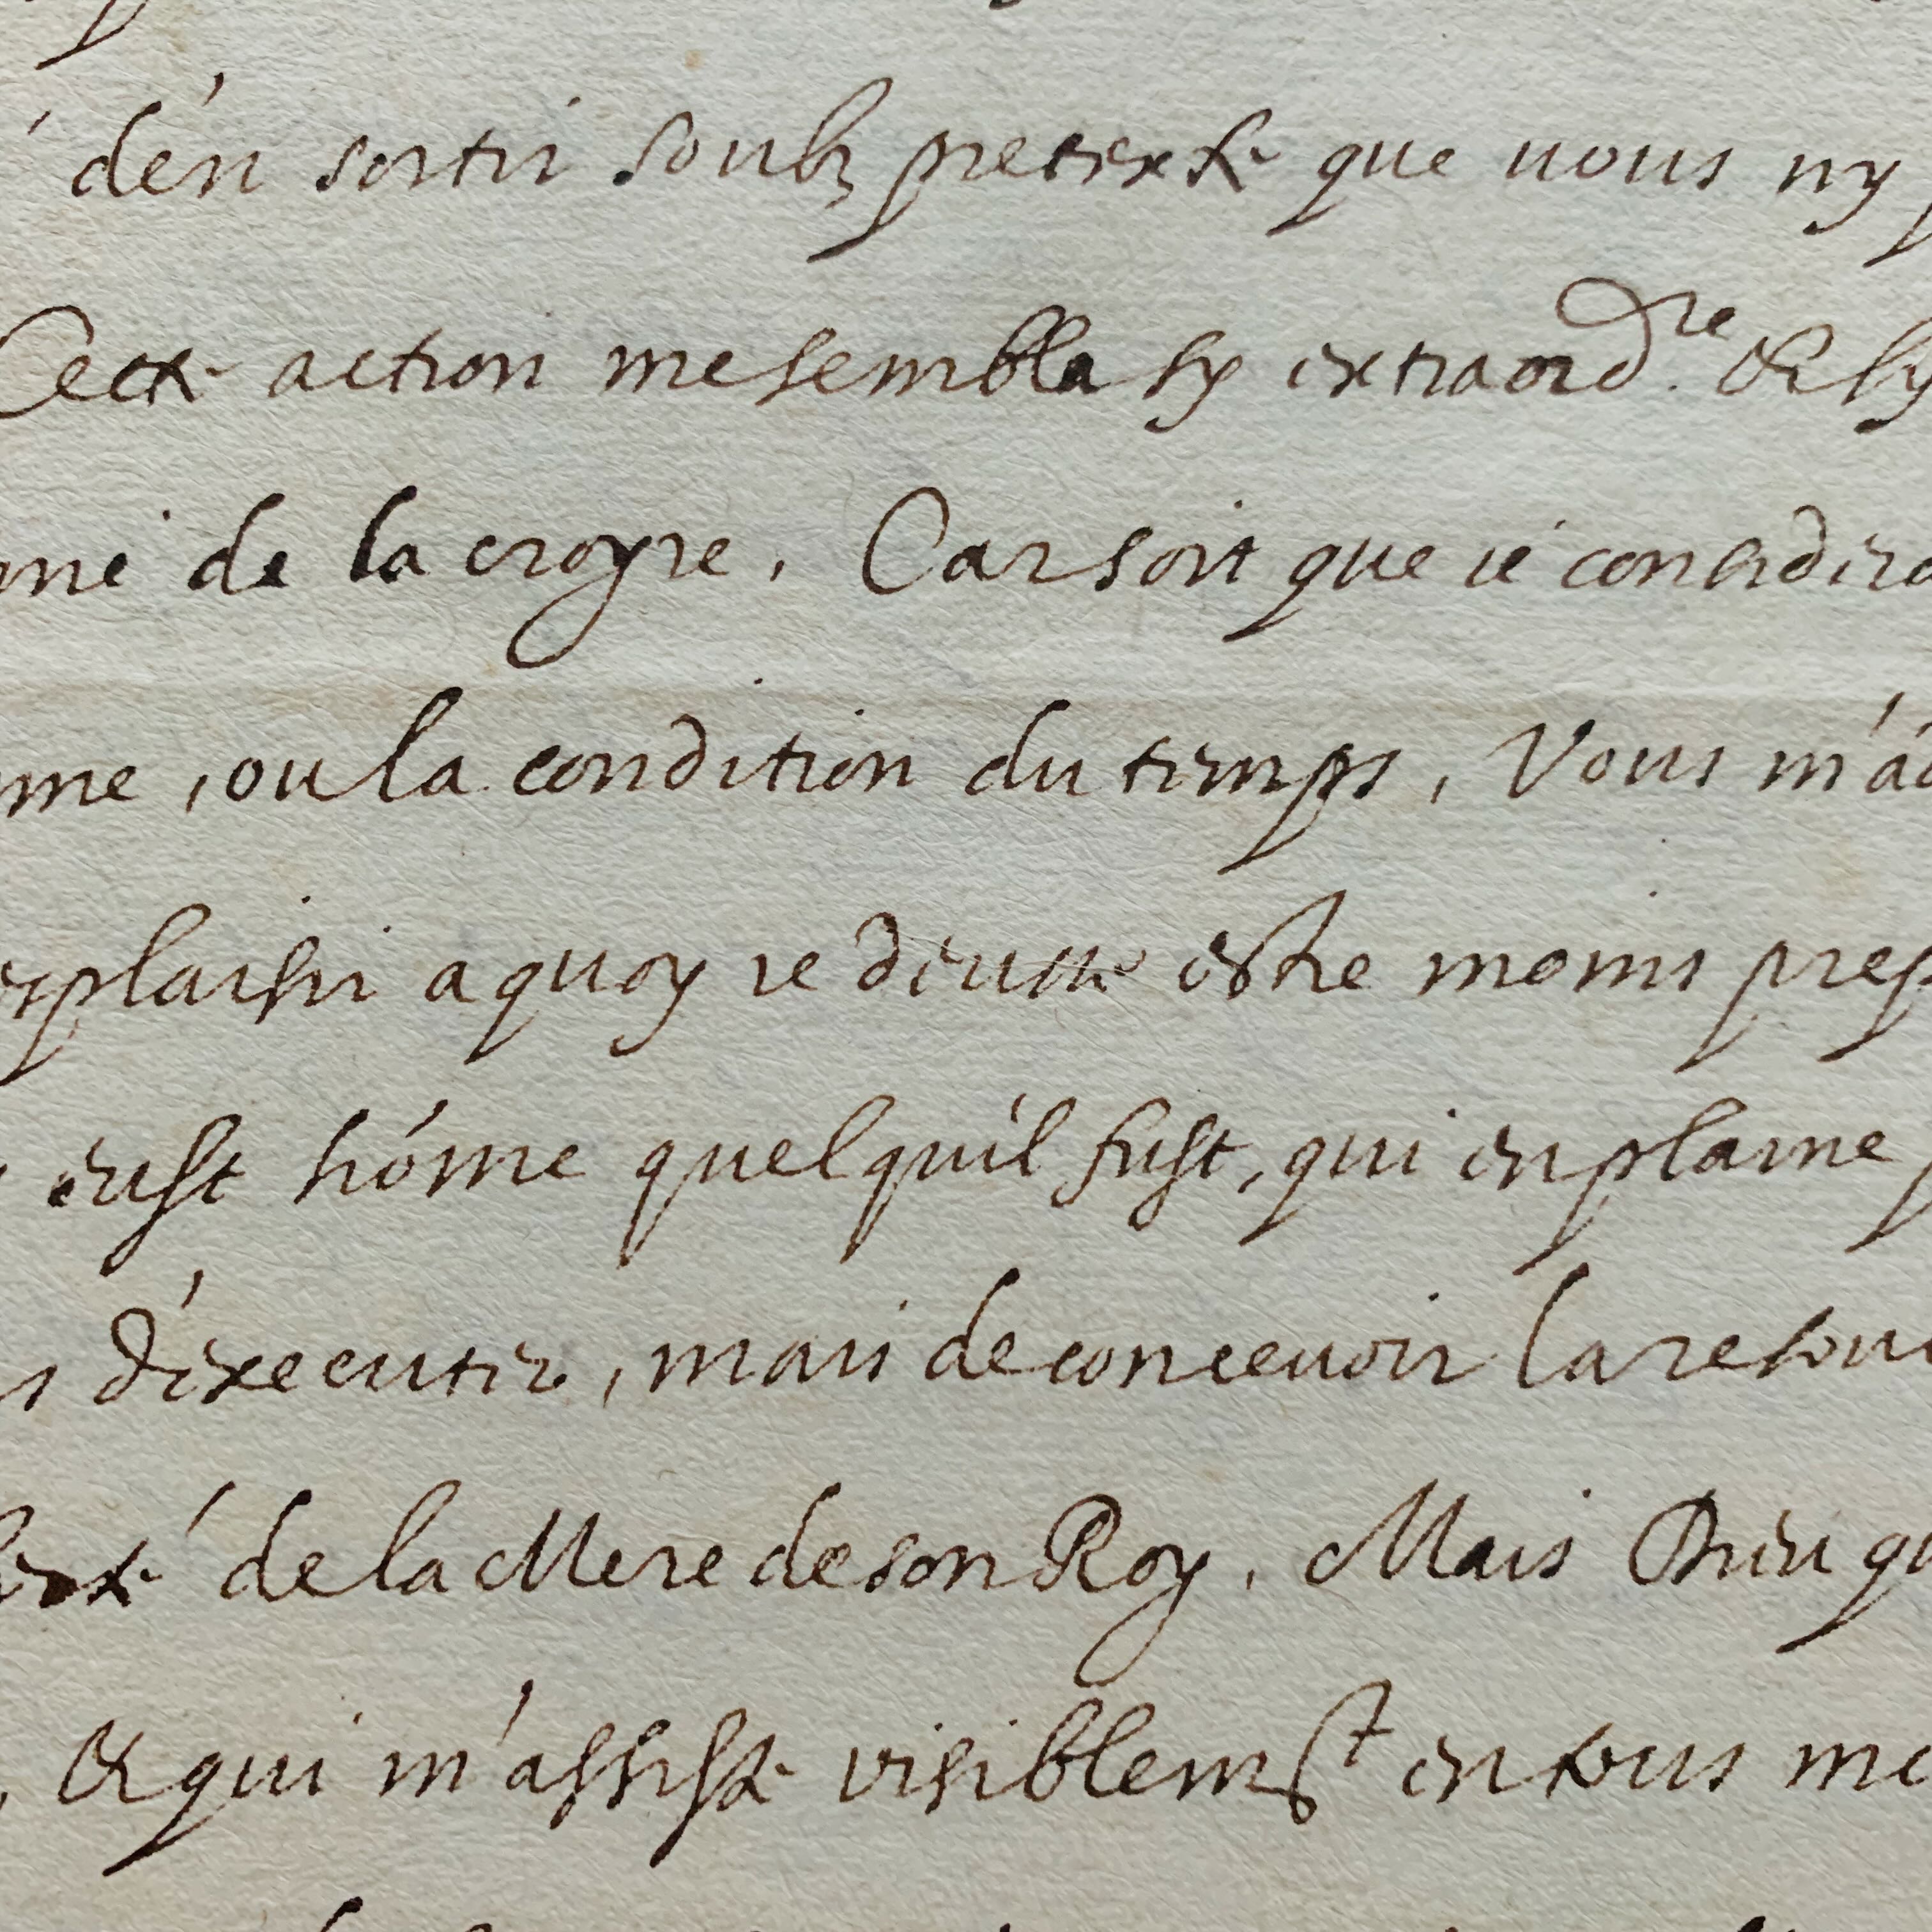 d'én sortir soubz pretexte que uous ny
Cette action me sembla sy extraord.re & sy
de la croyre, Car soit que ie considera
me, ou la condition du temps, Vous m'a
plaisir a quoy ie deusse estre moins prep
eust hóme quel qu'il fust, qui en plaine
d'executer, mais de conceuoir la resou
de la Mere de son Roy, Mais Dieu qu
, & qui m'assiste visiblemt en tous me